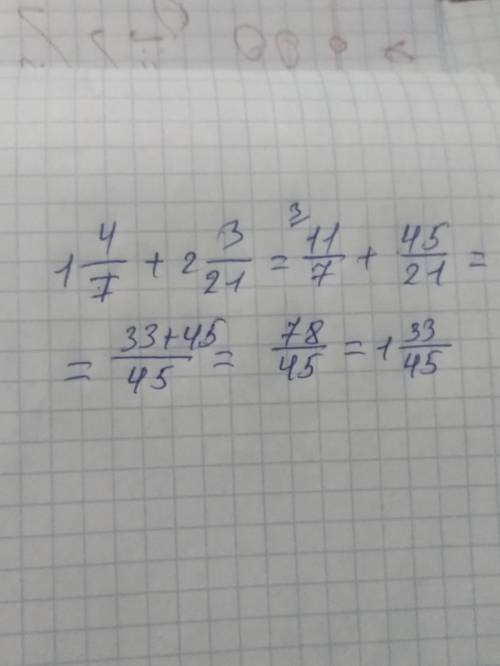 1 4/7 + 2 3/21 = 11/7 ³ + 45/21 =
= 33+45/45 = 78/45 = 1 33/45